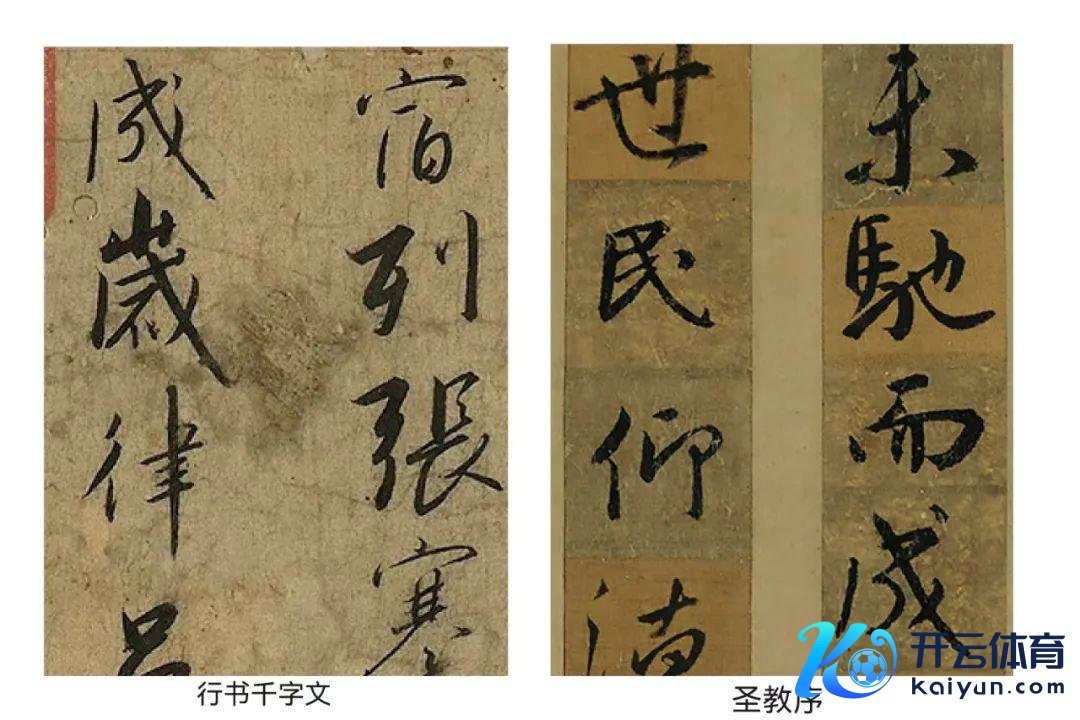 宿列張寒
成歲律呂
未馳而成
世民仰
行书千字文
圣教序
开云体育
kaiyun.com